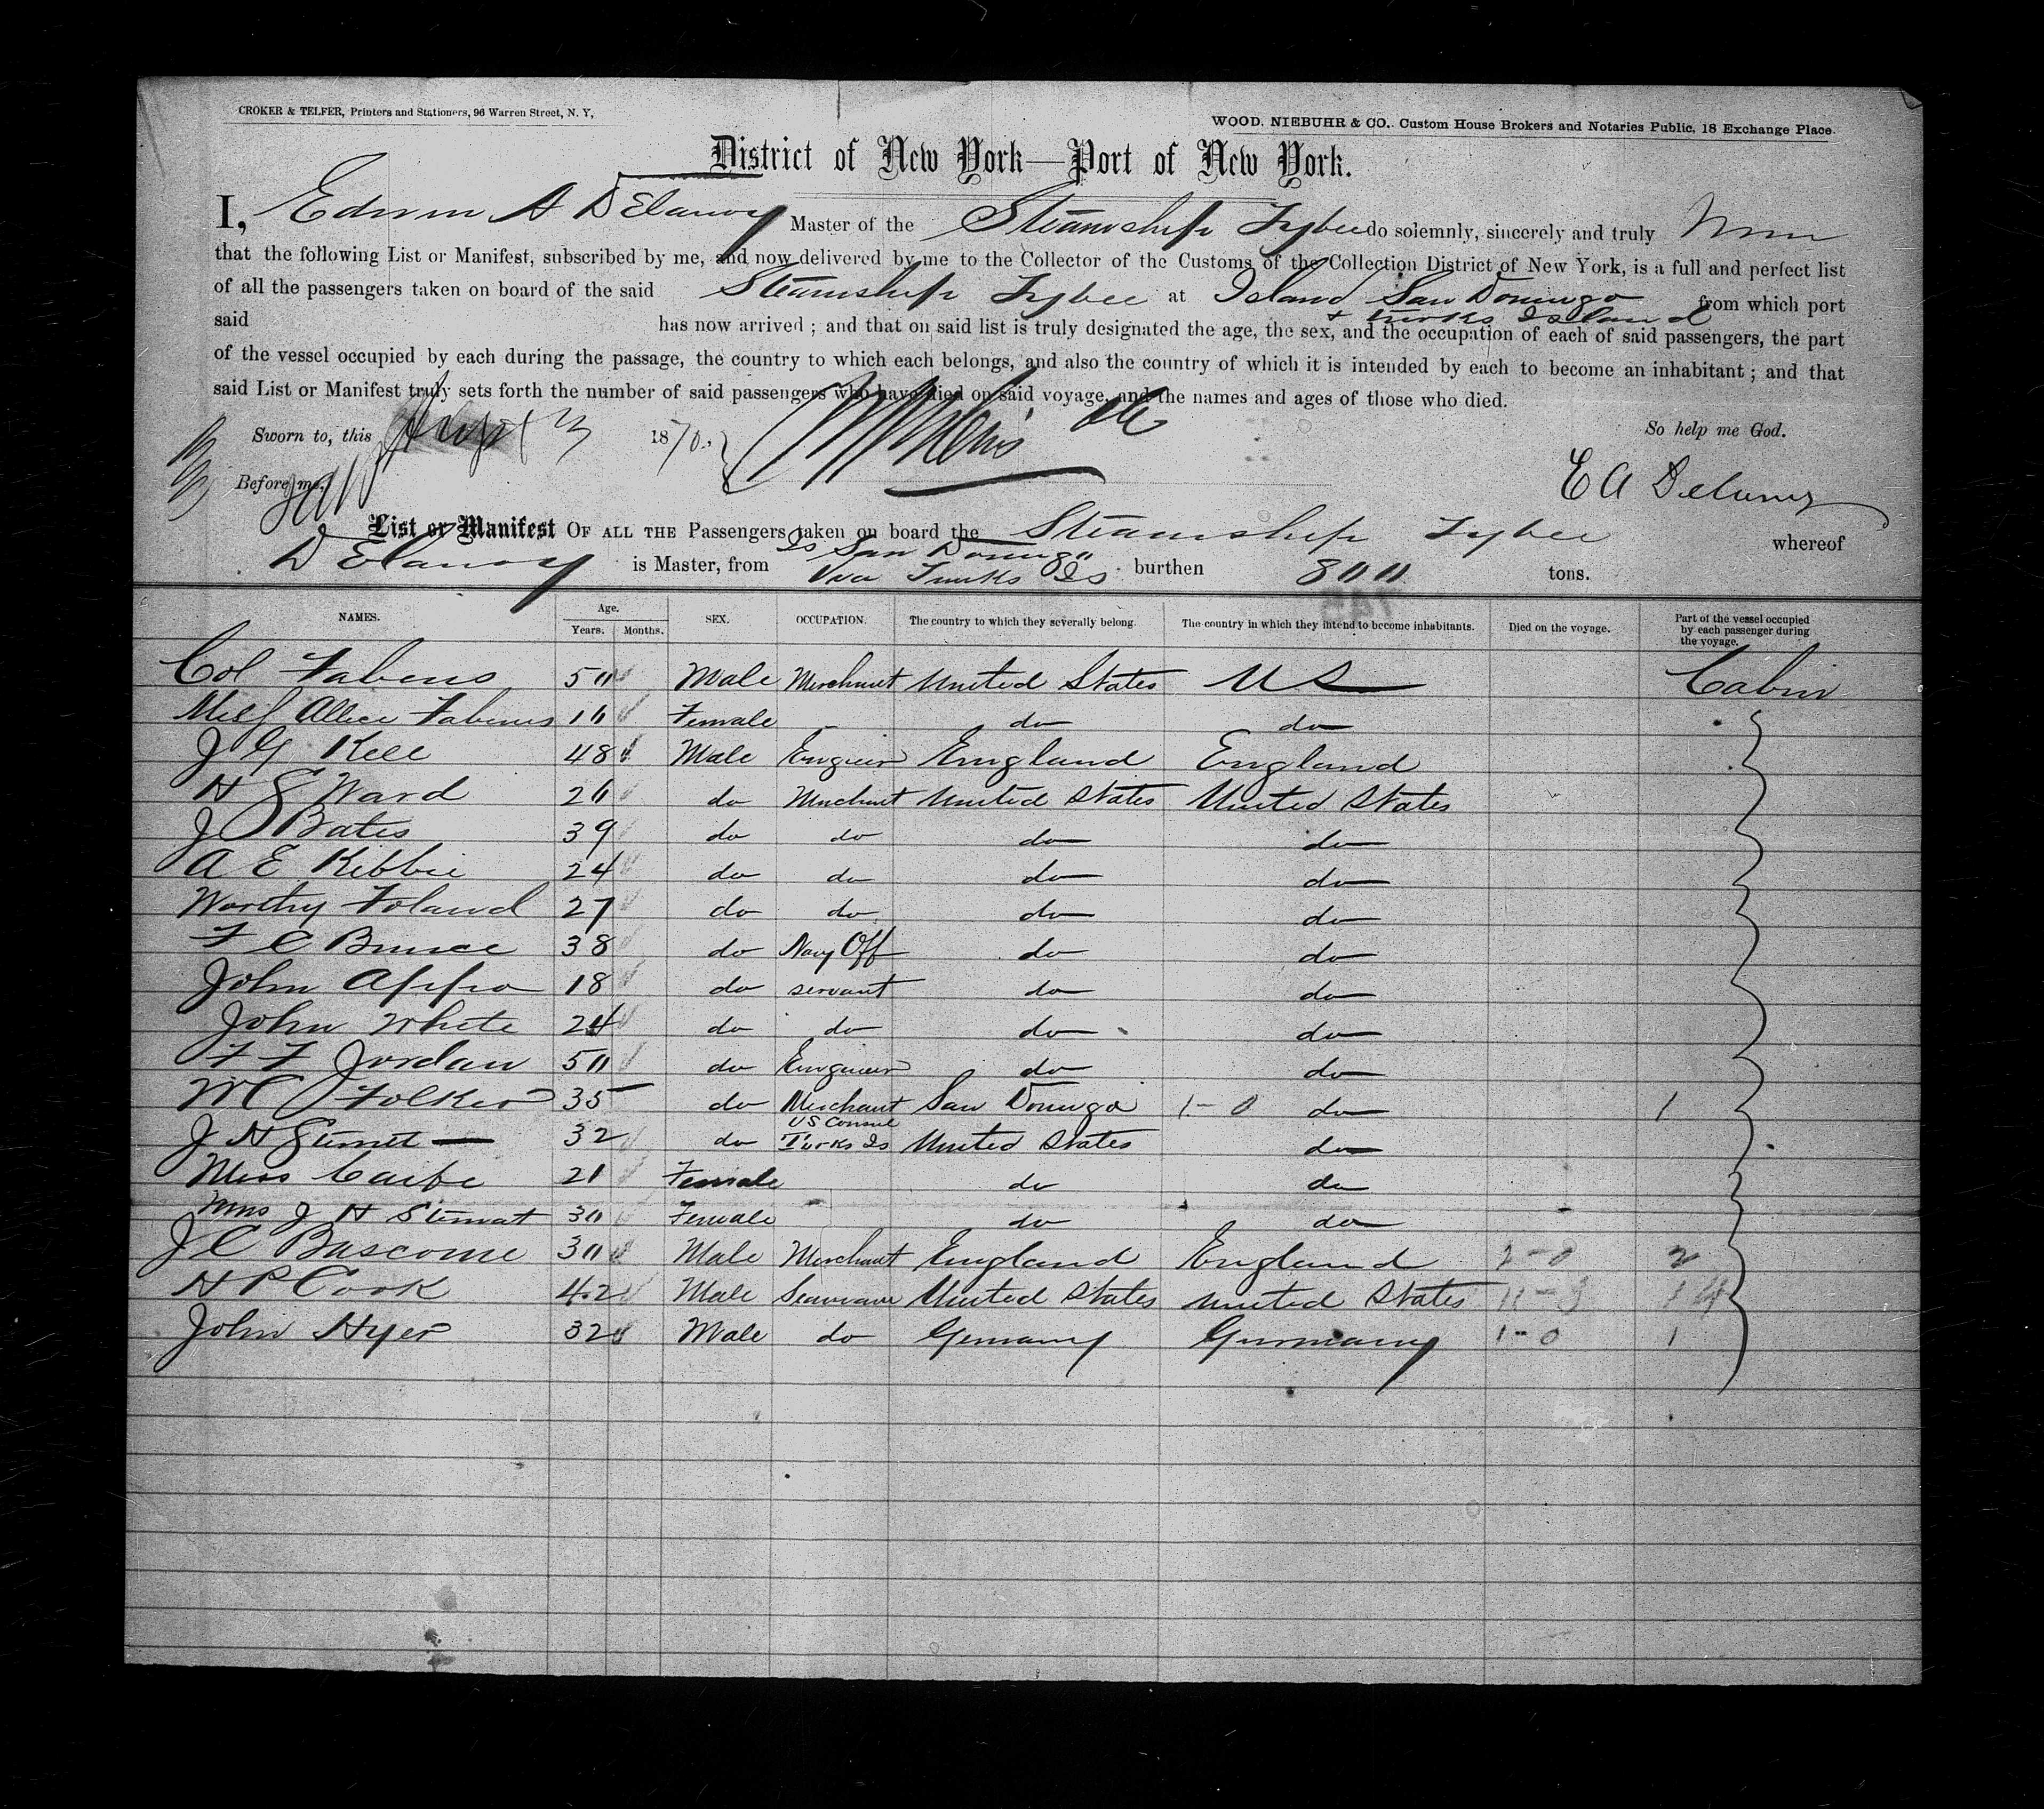 CROKER & TELFER, Printers and Stationers, 96 Warren Street, N. Y,
WOOD, NIEBUHR & CO., Custom House Brokers and Notaries Public, 18 Exchange Place.
District of New York—Port of New York.
I, Edwin A DElanoy Master of the Steamship Tybee do solemnly, sincerely and truly
that the following List or Manifest, subscribed by me, and now delivered by me to the Collector of the Customs of the Collection District of New York, is a full and perfect list
of all the passengers taken on board of the said Steamship Tybee at Island San Domingo from which port
& Turks Island
said has now arrived ; and that on said list is truly designated the age, the sex, and the occupation of each of said passengers, the part
of the vessel occupied by each during the passage, the country to which each belongs, and also the country of which it is intended by each to become an inhabitant ; and that
said List or Manifest truly sets forth the number of said passengers who have died on said voyage, and the names and ages of those who died.
Sworn to, this 3 1870. So help me God.
Before me, E A Delanoy
List or Manifest OF ALL THE Passengers taken on board the Steamship Tybee whereof
DElanoy is Master, from Is San Domingo Via Turks Is burthen 800 tons.
NAMES. Age. Years. Months. SEX. OCCUPATION. The country to which they severally belong. The country in which they intend to become inhabitants. Died on the voyage. Part of the vessel occupied by each passenger during the voyage.
Col Fabens 50 Male Merchant United States US Cabin
Miss Allice Fabens 16 Female do do
J G Kell 48 Male Engineer England England
H S Ward 26 do Merchant United States United States
J Bates 39 do do do do
A E Kibbie 24 do do do do
Worthy Foland 27 do do do do
F C Bruce 38 do Navy Off do do
John Appo 18 do servant do do
John White 24 do do do do
F F Jordan 50 do Engineer do do
Folker 35 do Merchant San Domingo 1-0 do 1
J H 32 do US Consul Turks Is United States do
Miss 21 Female do do
Mrs J H 30 Female do do
J C Bascome 30 Male Merchant England England 2-0 2
H P Cook 42 Male Seaman United States United States 11-3 14
John Hyer 32 Male do Germany Germany 1-0 1